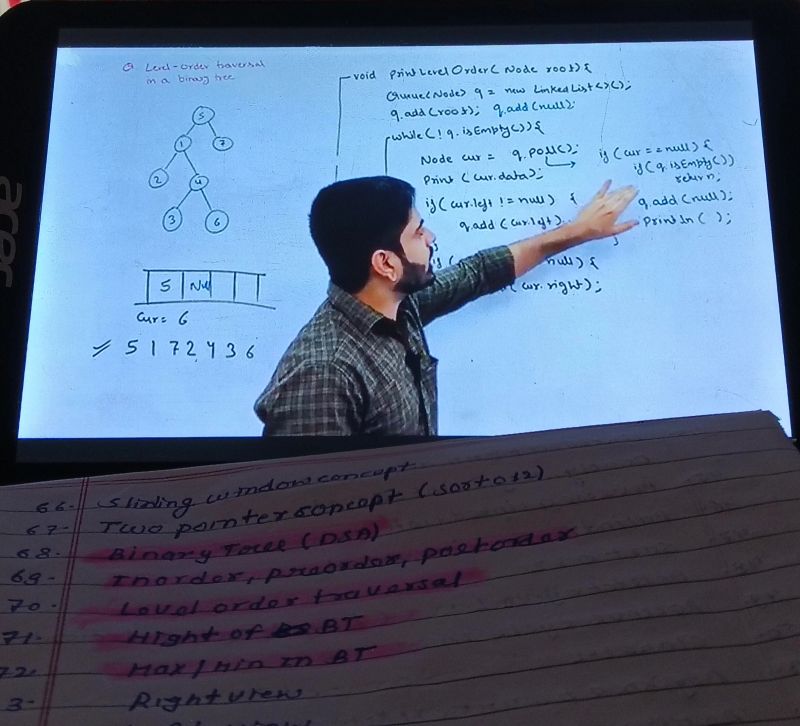 acer
Q Level-order traversal
in a binary tree
5
1 7
2 4
3 6
5 Null
Cur = 6
5 1 7 2 4 3 6
void printLevelOrder( Node root) {
Queue<Node> q = new LinkedList<>();
q.add(root); q.add(null);
while( ! q.isEmpty()) {
Node cur = q.poll();
Print (cur.data);
if( cur.left != null) {
q.add(cur.left)
null) {
cur.right);
if (cur == null) {
if(q.isEmpty())
return;
q.add(null);
Println( );
}
66. Sliding window concept
67- Two pointer concept (sort 012)
68. Binary Tree (DSA)
69- Inorder, preorder, postorder
70. Level order traversal
71. Hight of BT
72. Max/Min in BT
3- Right view